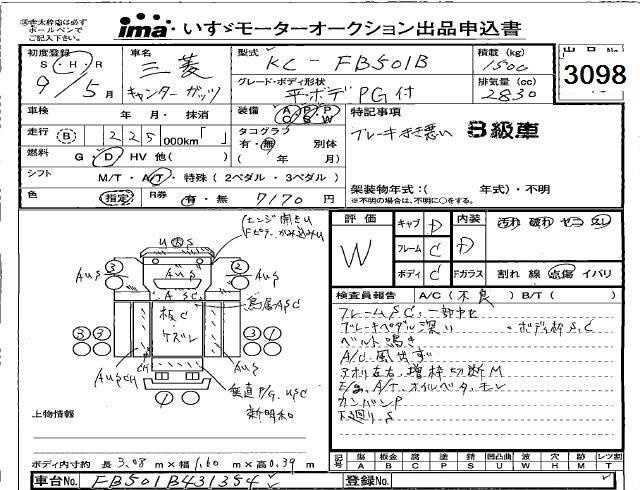 ※太枠内は必ず
ボールペンで
ご記入下さい。
ima いすゞモーターオークション出品申込書
初度登録
S・H・R
9/5月
車名
三菱
キャンター ガッツ
型式
KC-FB501B
グレード・ボディ形状
平ボデ PG付
積載 (kg)
1500
排気量 (cc)
2830
3098
車検 年・月・抹消
装備 A/C P/S P/W
特記事項
走行 B 225000km「 」
タコグラフ
有・無 別体
( 年 月)
ブレーキ効き悪い B級車
燃料 G・D・HV 他( )
シフト M/T・A/T・特殊(2ペダル・3ペダル)
架装物年式:( 年式)・不明
※不明の場合は、不明に○をする。
色 指定 R券 有・無 7170円
評価
W
キャブ D
フレーム C
ボディ C
内装 D
Fガラス
汚れ 破れ ヤニ スレ
割れ 線 点傷 イバリ
検査員報告 A/C(不良) B/T( )
フレームSC、一部中化
ブレーキペダル深い ・ボディ枠S,C
ベルト鳴き
A/C風出ず
アオリ左右、増枠切断M
E/g,A/T,オイルベタ,モレ
カンバンP
下廻りS
エンジン開きU
Fピラーかみ込みU
AUS
AUS
AUS
ASC
金属ASC
板C
・ズレ
AUSCH
CH
AUS
垂直P/G.USC
新明和
上物情報
ボディ内寸約 長 3.08 m×幅 1.60 m×高 0.39 m
記号
傷 板金 腐 塗 錆 凹凸曲 波 穴 跡 レツ割
A B C P S U W H M T
車台No. FB501B431354
登録No.